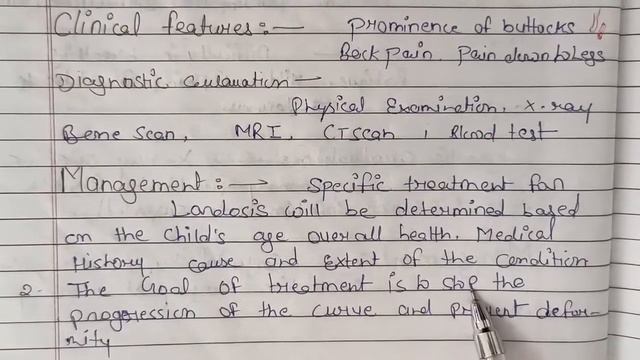 Clinical features:— Prominence of buttocks
Back pain. Pain down to legs
Diagnostic evaluation —
Physical Examination, X-ray
Bone Scan, MRI, CT scan, Blood test
Management:—→ Specific treatment for
Lordosis will be determined based
on the Child's age overall health. Medical
History cause and Extent of the condition
2- The Goal of treatment is to stop the
progression of the curve and prevent defor-
mity